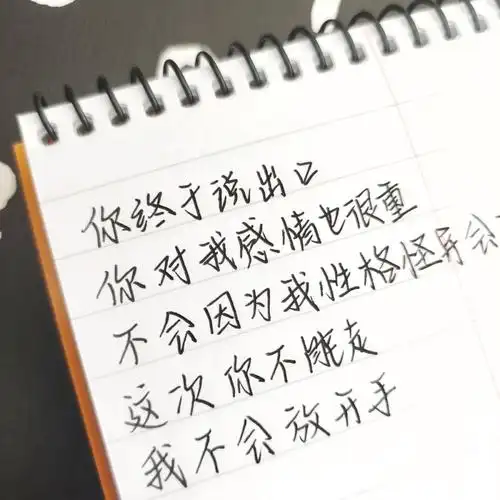 你终于说出口
你对我感情也很重
不会因为我性格怪异会
这次你不能走
我不会放开手